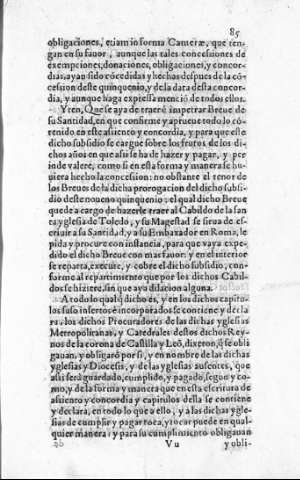 85
obligaciones, etiam in forma Cameræ, que ten-
gan en su fauor, aunque las tales concessiones de
exempciones, donaciones, obligaciones, y concor-
dias, ayan sido cōcedidas y hechas despues de la cō-
cession deste quinquenio, y de la data desta concor-
dia, y aunque haga expressa menció de todos ellos.
Yten, Que se aya de traer e impetrar Breue de
su Santidad, en que confirme y aprueue todo lo cō-
tenido en este assiento y concordia, y para que este
dicho subsidio se cargue sobre los frutos de los di-
chos años en que assi se ha de hazer y pagar, y pre
inde valere, como si en esta forma y manera se hu-
uiera hecho la concession: no obstante el tenor de
los Breues de la dicha prorogacion del dicho subsi-
dio deste noueno quinquenio: el qual dicho Breue
quede a cargo de hazerle traer al Cabildo de la san
ta yglesia de Toledo, y su Magestad se sirua de es-
criuir a su Santidad, y a su Embaxador en Roma, le
pida y procure con instancia, para que vaya expe-
dido el dicho Breue con mas fauor: y en el interior
se reparta, execute, y cobre el dicho subsidio, con-
forme al repartimiento que por los dichos Cabil-
dos se hiziere, sin que aya dilacion alguna.
A todo lo qual q̃ dicho es, y en los dichos capitu-
los suso insertos e incorporados se contiene y decla
ra, los dichos Procuradores de las dichas yglesias
Metropolitanas, y Catedrales destos dichos Rey-
nos de la corona de Castilla y Leō, dixeron, q̃ se obli
gauan, y obligarō por si, y en nombre de las dichas
yglesias y Diocesis, y de las yglesias ausentes, que
assi serà guardado, cumplido, y pagado, segun y co-
mo, y de la forma y manera que en esta escritura de
assiento y concordia y capitulos della se contiene
y declara, en todo lo que a ello, y a las dichas ygle-
sias de cumplir y pagar toca, y tocar puede en qual-
quier manera: y para su cumplimiento obligauan
Vu y obli-